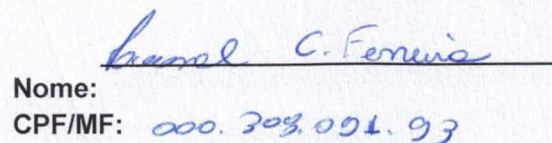 C. Ferreira
Nome:
CPF/MF: 000.309.091.93